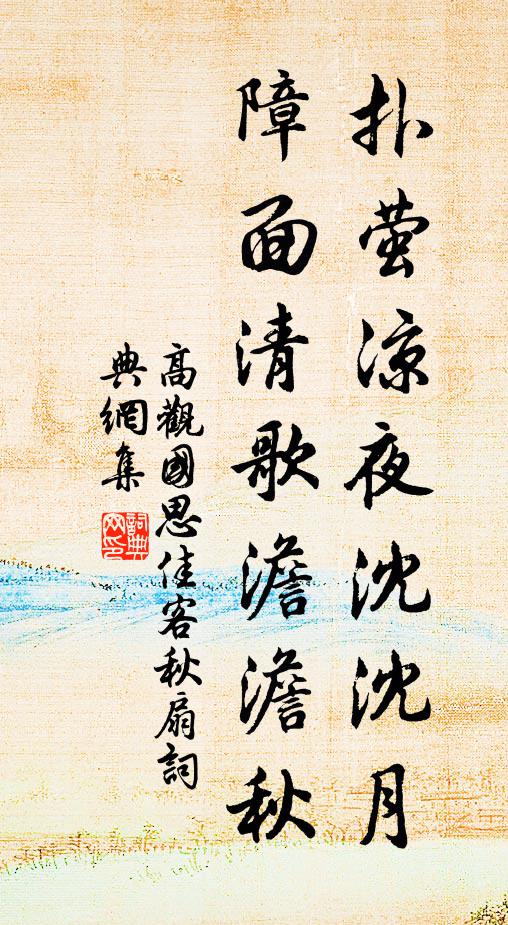 扑萤涼夜沈沈月
障面清歌澹澹秋
高觀國思佳客秋扇詞
典網集
詞典
网印